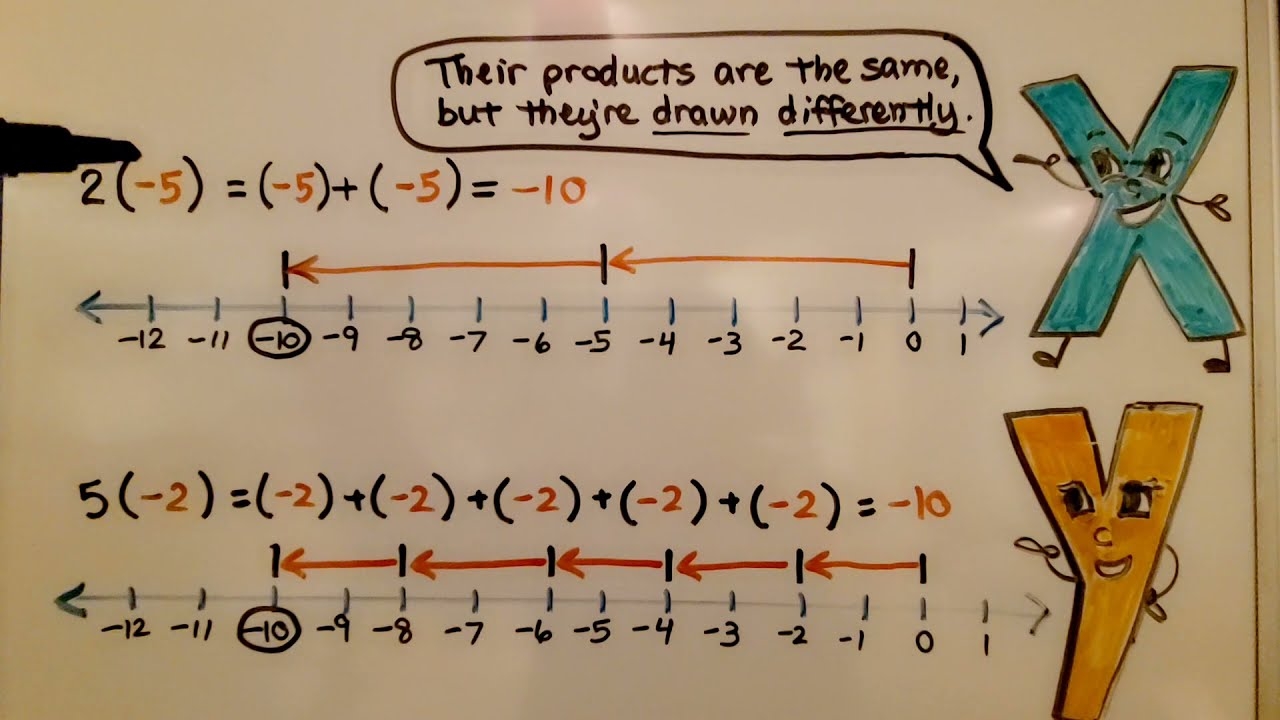 Their products are the same,
but they're drawn differently.
2(-5) = (-5)+(-5) = -10
-12 -11 -10 -9 -8 -7 -6 -5 -4 -3 -2 -1 0 1
5(-2) = (-2)+(-2)+(-2)+(-2)+(-2) = -10
-12 -11 -10 -9 -8 -7 -6 -5 -4 -3 -2 -1 0 1
X
Y